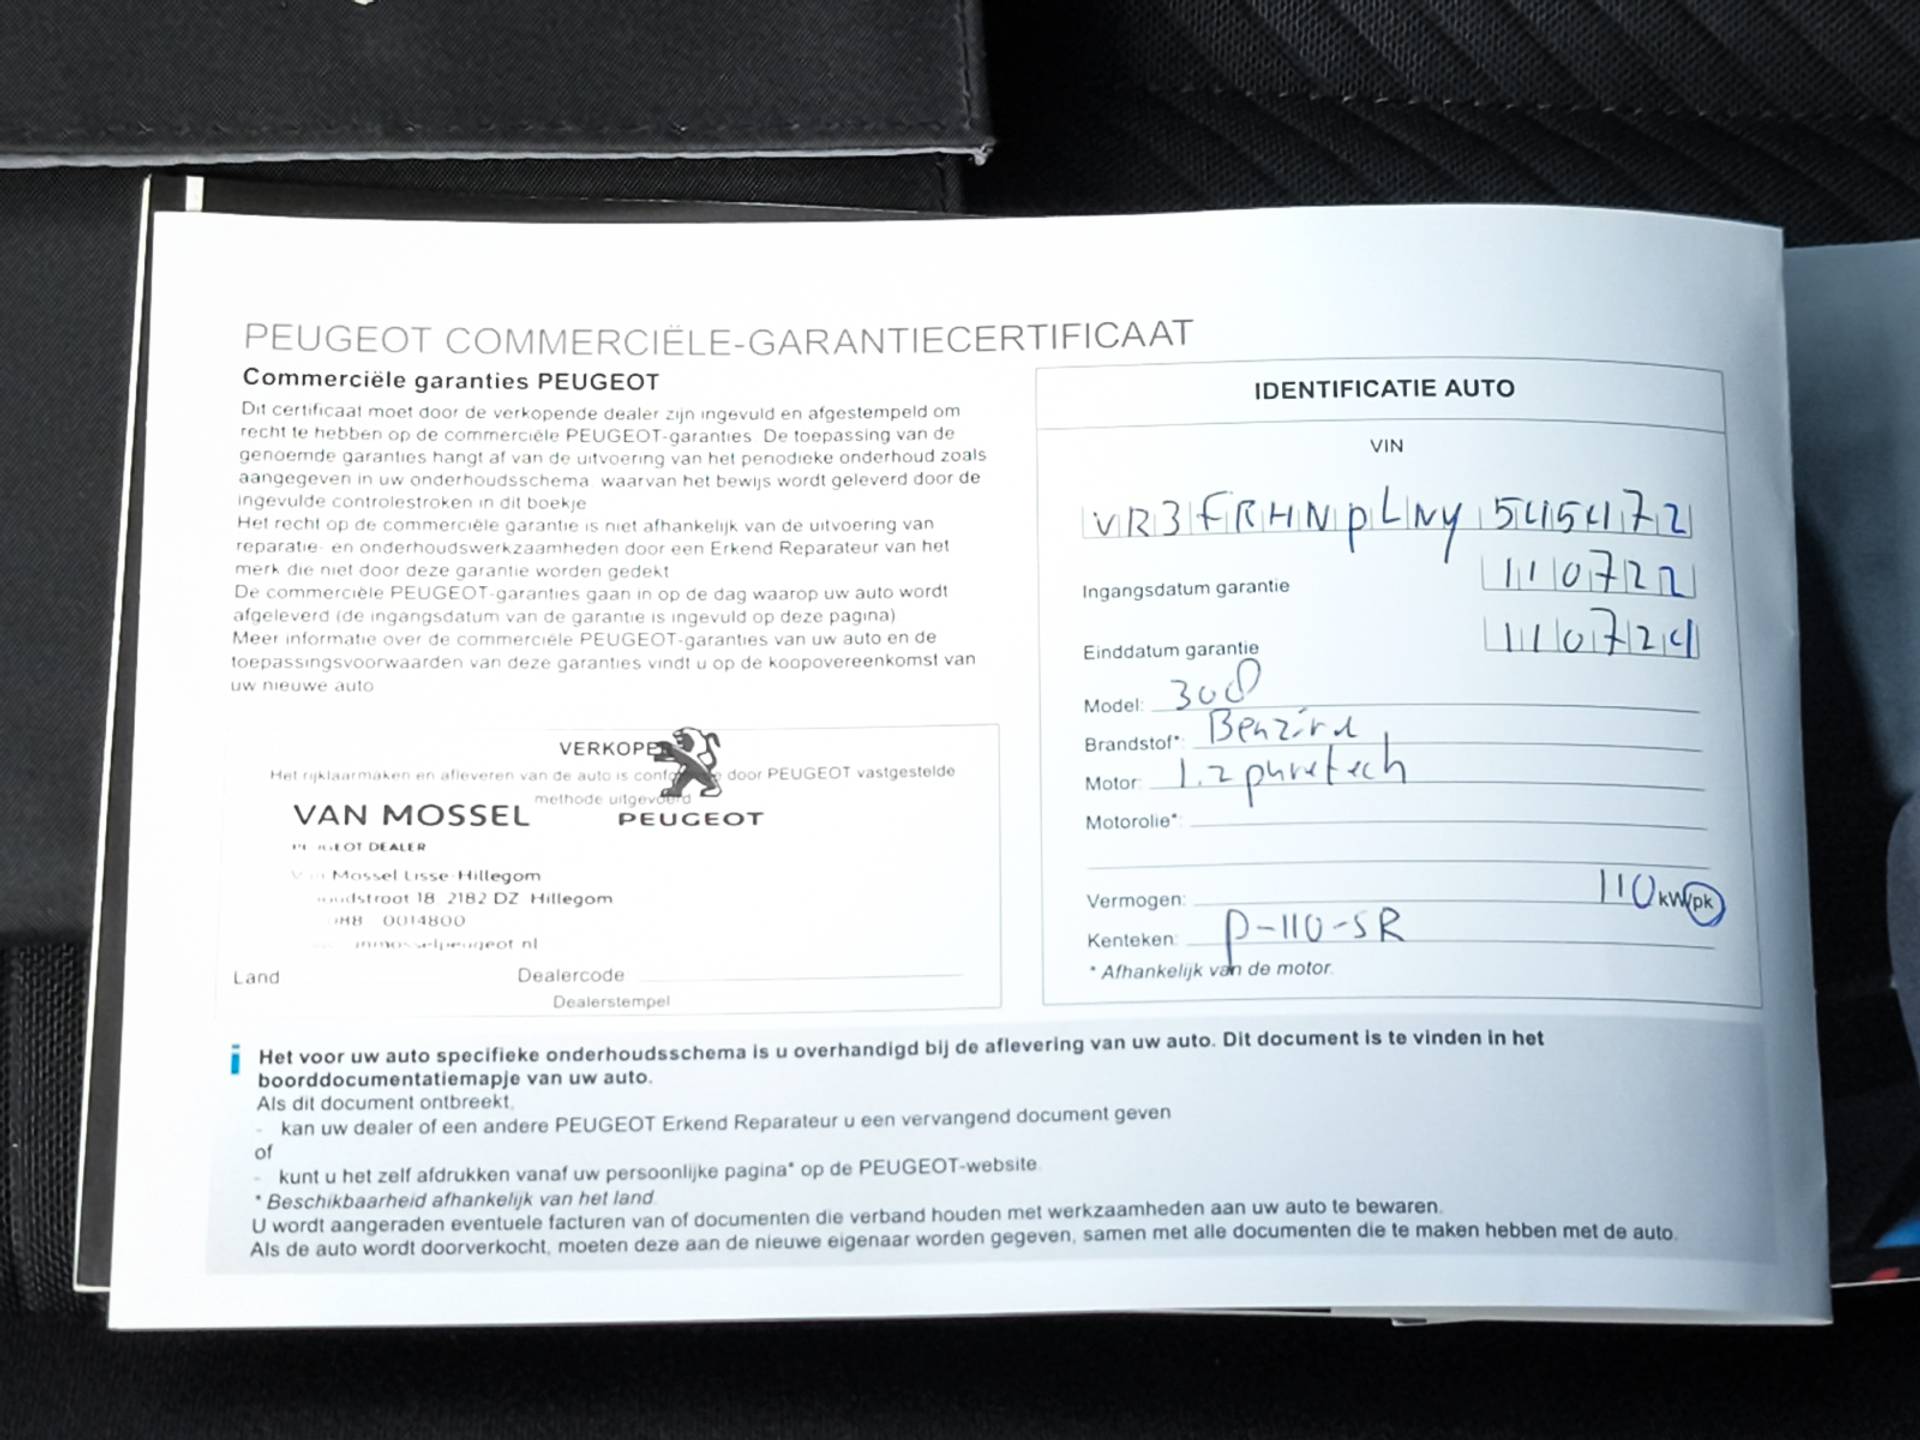 PEUGEOT COMMERCIËLE-GARANTIECERTIFICAAT
Commerciële garanties PEUGEOT
Dit certificaat moet door de verkopende dealer zijn ingevuld en afgestempeld om
recht te hebben op de commerciële PEUGEOT-garanties. De toepassing van de
genoemde garanties hangt af van de uitvoering van het periodieke onderhoud zoals
aangegeven in uw onderhoudsschema, waarvan het bewijs wordt geleverd door de
ingevulde controlestroken in dit boekje
Het recht op de commerciële garantie is niet afhankelijk van de uitvoering van
reparatie- en onderhoudswerkzaamheden door een Erkend Reparateur van het
merk die niet door deze garantie worden gedekt
De commerciële PEUGEOT-garanties gaan in op de dag waarop uw auto wordt
afgeleverd (de ingangsdatum van de garantie is ingevuld op deze pagina)
Meer informatie over de commerciële PEUGEOT-garanties van uw auto en de
toepassingsvoorwaarden van deze garanties vindt u op de koopovereenkomst van
uw nieuwe auto
VERKOPER
Het rijklaarmaken en afleveren van de auto is conform de door PEUGEOT vastgestelde
methode uitgevoerd
VAN MOSSEL PEUGEOT
PEUGEOT DEALER
Van Mossel Lisse-Hillegom
18 2182 DZ Hillegom
0014800
Land Dealercode
Dealerstempel
IDENTIFICATIE AUTO
VIN
VR3FRHNPLNY545472
Ingangsdatum garantie 110722
Einddatum garantie 110724
Model: 308
Brandstof*: Benzine
Motor: 1.2 puretech
Motorolie*:
Vermogen: 110 kW/pk
Kenteken: P-110-SR
* Afhankelijk van de motor.
i Het voor uw auto specifieke onderhoudsschema is u overhandigd bij de aflevering van uw auto. Dit document is te vinden in het
boorddocumentatiemapje van uw auto.
Als dit document ontbreekt,
- kan uw dealer of een andere PEUGEOT Erkend Reparateur u een vervangend document geven
of
- kunt u het zelf afdrukken vanaf uw persoonlijke pagina* op de PEUGEOT-website.
* Beschikbaarheid afhankelijk van het land.
U wordt aangeraden eventuele facturen van of documenten die verband houden met werkzaamheden aan uw auto te bewaren.
Als de auto wordt doorverkocht, moeten deze aan de nieuwe eigenaar worden gegeven, samen met alle documenten die te maken hebben met de auto.